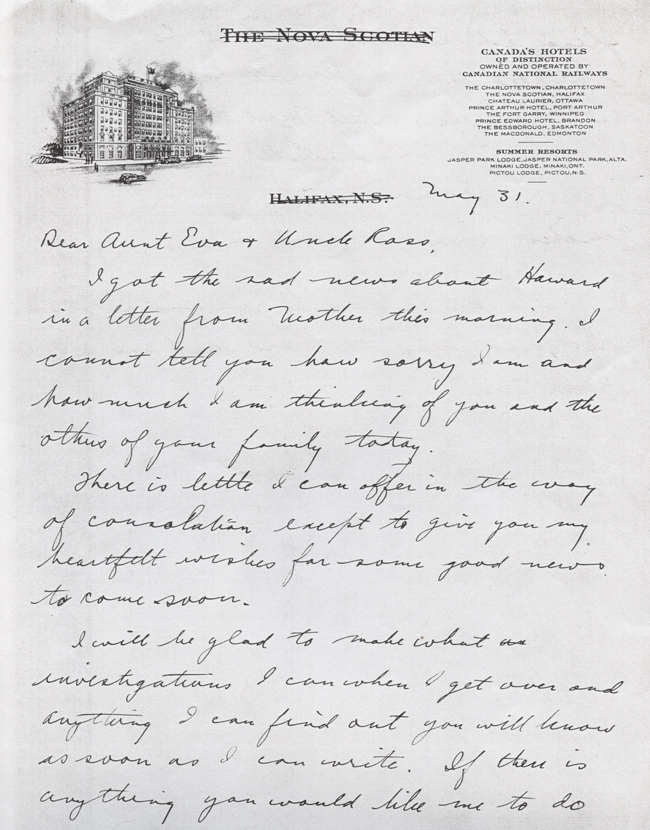 THE NOVA SCOTIAN
CANADA'S HOTELS
OF DISTINCTION
OWNED AND OPERATED BY
CANADIAN NATIONAL RAILWAYS
THE CHARLOTTETOWN, CHARLOTTETOWN
THE NOVA SCOTIAN, HALIFAX
CHATEAU LAURIER, OTTAWA
PRINCE ARTHUR HOTEL, PORT ARTHUR
THE FORT GARRY, WINNIPEG
PRINCE EDWARD HOTEL, BRANDON
THE BESSBOROUGH, SASKATOON
THE MACDONALD, EDMONTON
SUMMER RESORTS
JASPER PARK LODGE, JASPER NATIONAL PARK, ALTA.
MINAKI LODGE, MINAKI, ONT.
PICTOU LODGE, PICTOU, N.S.
HALIFAX, N.S.
May 31.
Dear Aunt Eva & Uncle Ross,
I got the sad news about Howard
in a letter from Mother this morning. I
cannot tell you how sorry I am and
how much I am thinking of you and the
others of your family today.
There is little I can offer in the way
of consolation except to give you my
heartfelt wishes for some good news
to come soon.
I will be glad to make what
investigations I can when I get over and
anything I can find out you will know
as soon as I can write. If there is
anything you would like me to do